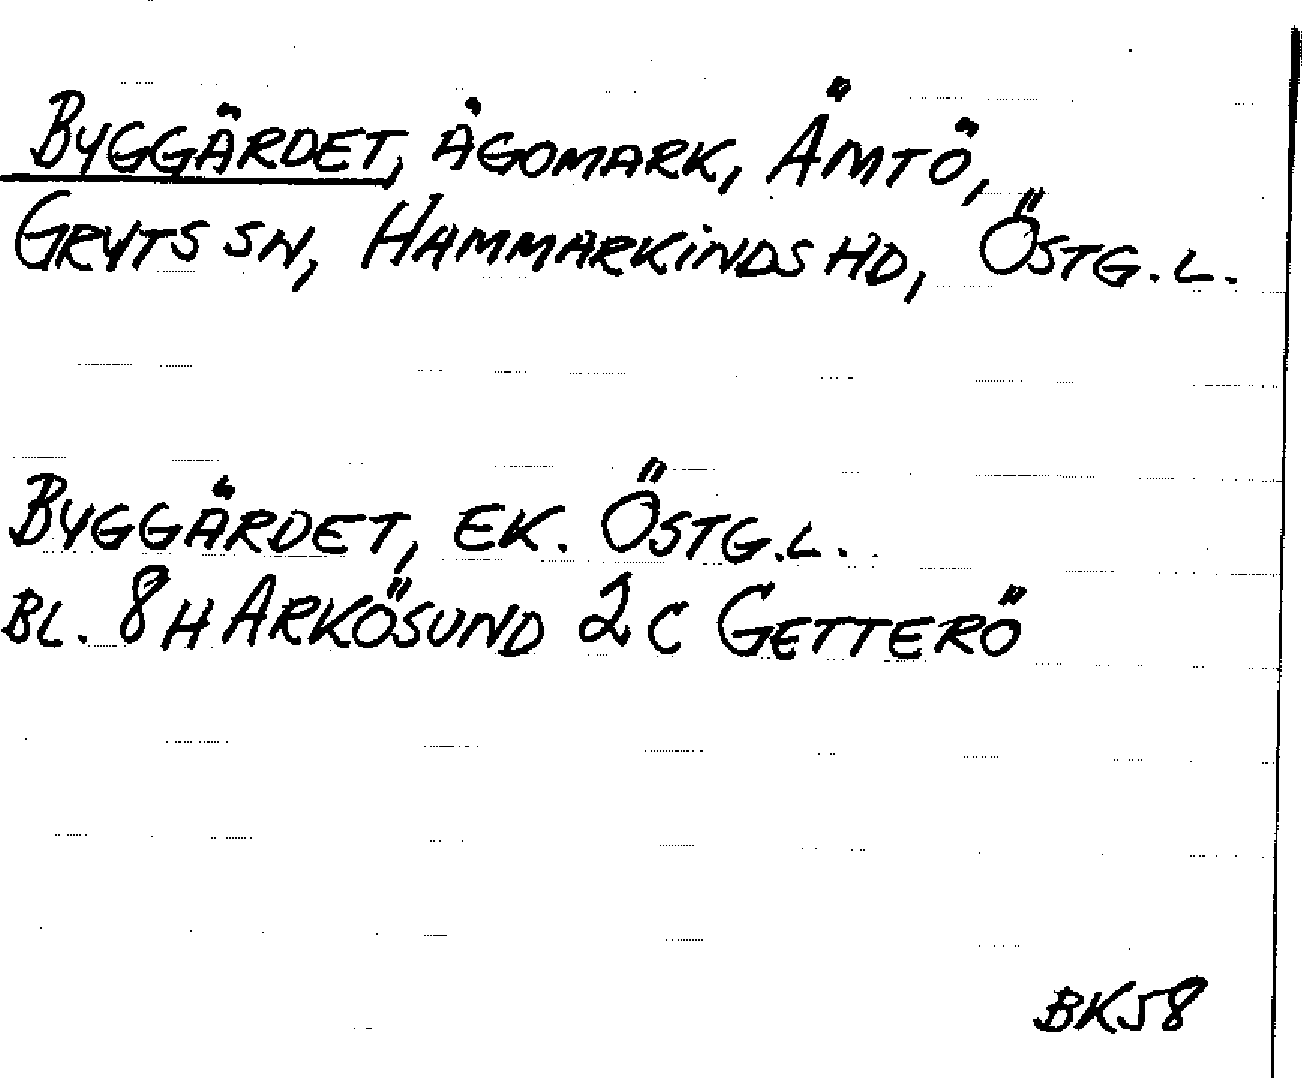 BYGGÄRDET, ÄGOMARK, ÅMTÖ,
GRYTS SN, HAMMARKINDS HD, ÖSTG. L.
BYGGÄRDET, EK. ÖSTG.L.
BL. 8H ARKÖSUND 2C GETTERÖ
BK58